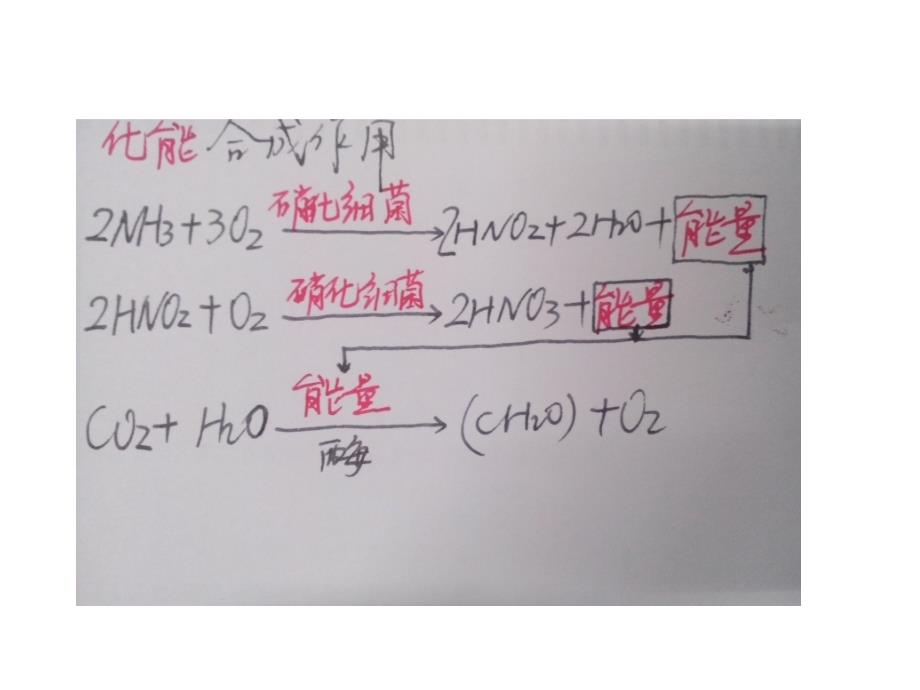 化能合成作用
2NH3+3O2 硝化细菌 → 2HNO2+2H2O+能量
2HNO2+O2 硝化细菌 → 2HNO3+能量
能量
CO2+H2O → (CH2O)+O2
酶